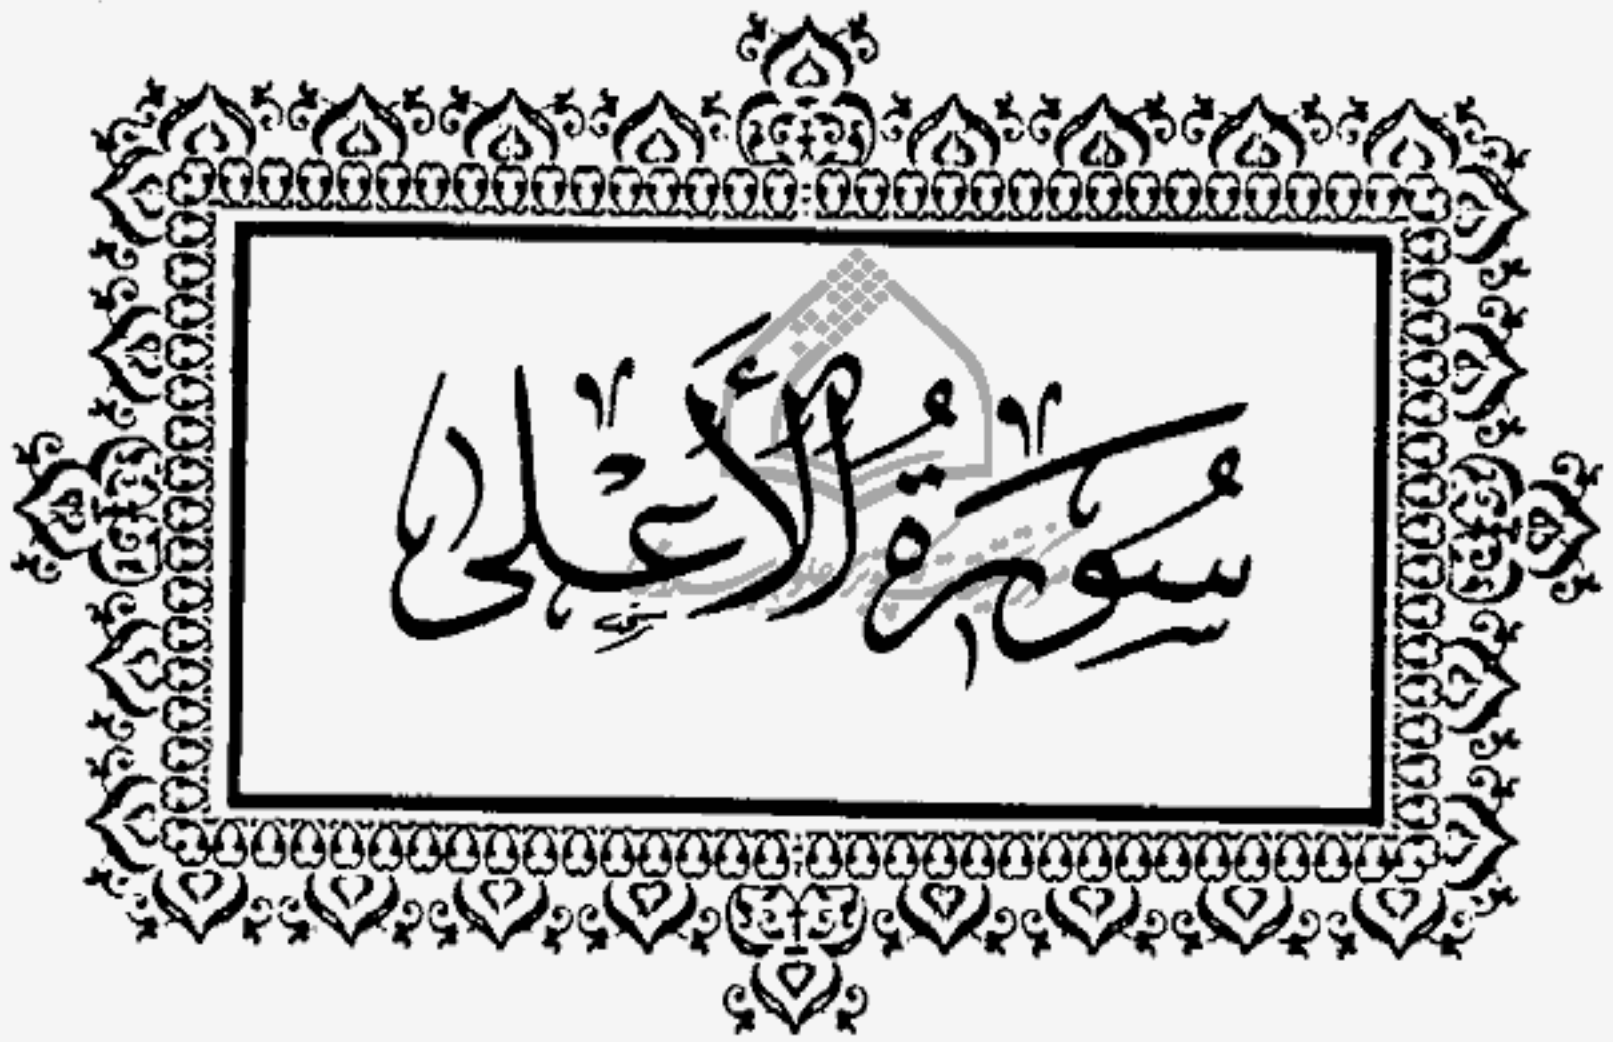 سُورَةُ الأَعْلى